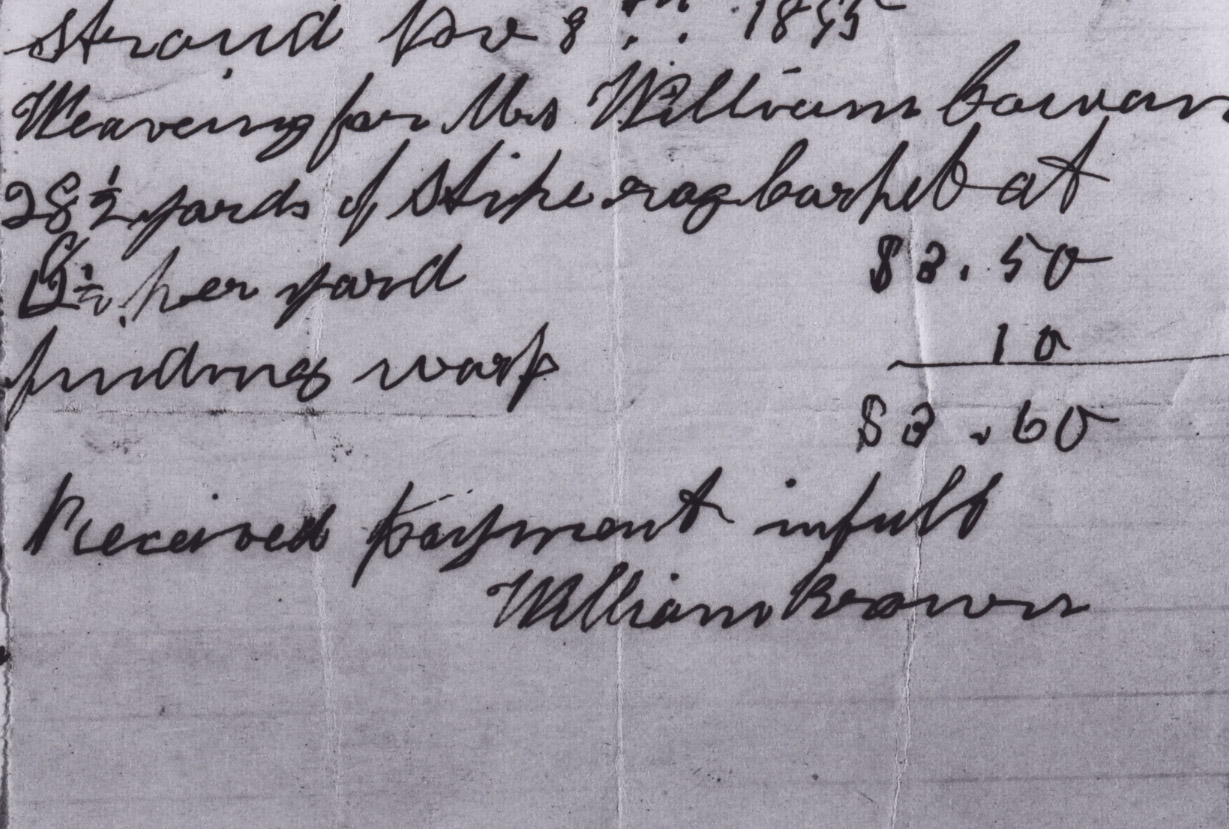 Strand Nov 8th 1895
Weaving for Mrs William Cowan
28½ yards of Stripe rag Carpet at
12½ per yard $3.50
finding warp 10
$3.60
Received payment in full
William Brown